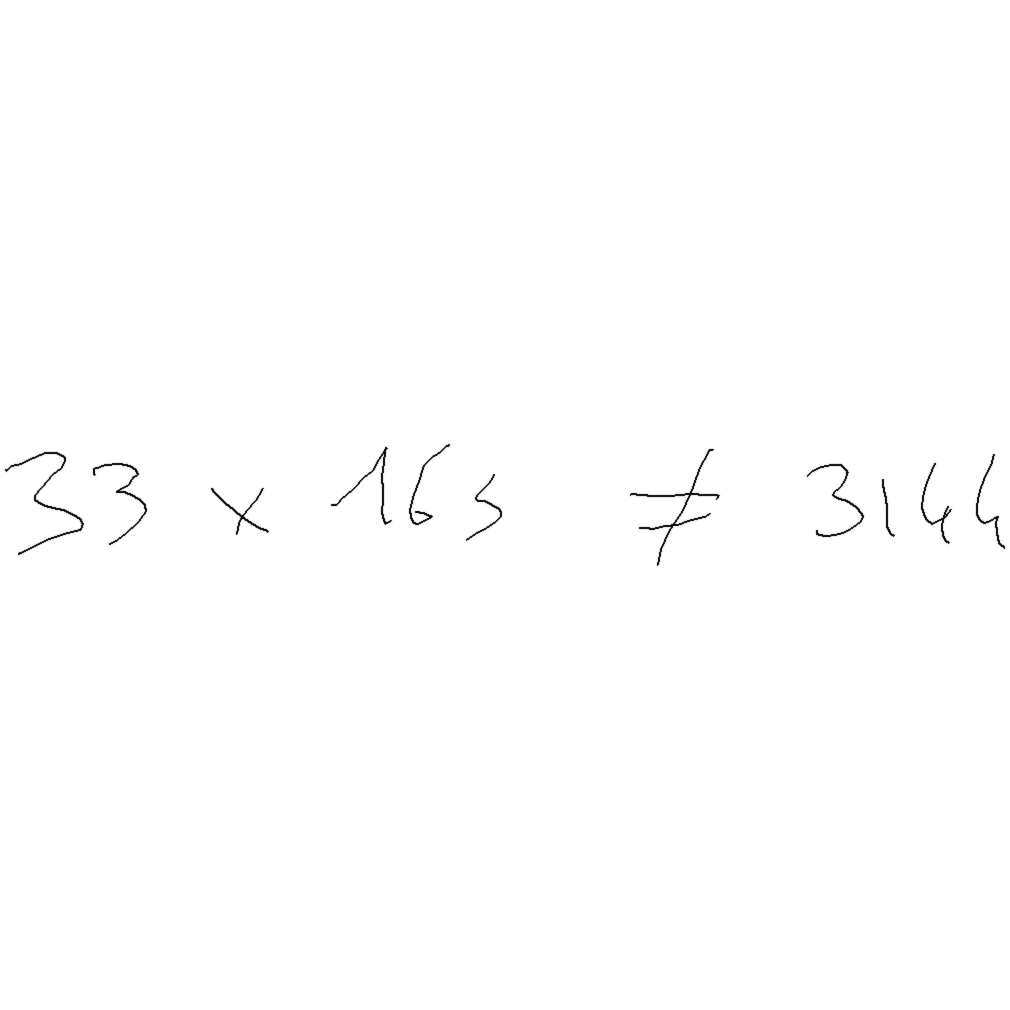 33 x 165 ≠ 3144